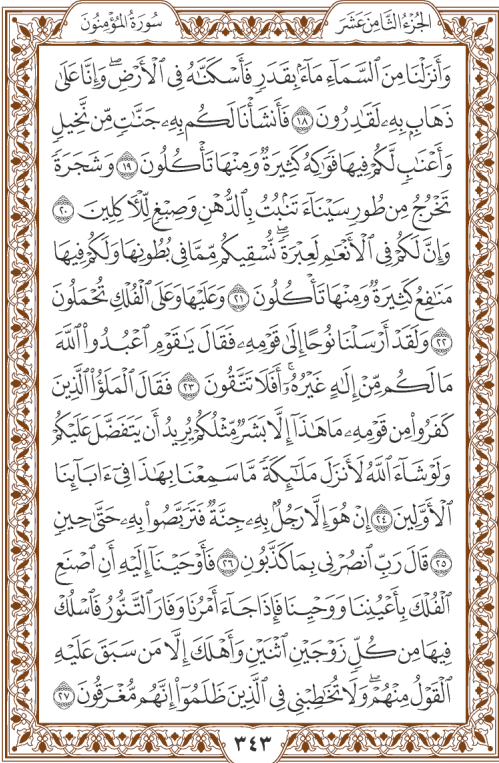 الجُزْءُ الثَّامِنَ عَشَرَ
سُورَةُ المُؤْمِنُونَ
وَأَنزَلۡنَا مِنَ ٱلسَّمَآءِ مَآءَۢ بِقَدَرٖ فَأَسۡكَنَّٰهُ فِي ٱلۡأَرۡضِۖ وَإِنَّا عَلَىٰ
ذَهَابِۭ بِهِۦ لَقَٰدِرُونَ ١٨ فَأَنشَأۡنَا لَكُم بِهِۦ جَنَّٰتٖ مِّن نَّخِيلٖ
وَأَعۡنَٰبٖ لَّكُمۡ فِيهَا فَوَٰكِهُ كَثِيرَةٞ وَمِنۡهَا تَأۡكُلُونَ ١٩ وَشَجَرَةٗ
تَخۡرُجُ مِن طُورِ سَيۡنَآءَ تَنۢبُتُ بِٱلدُّهۡنِ وَصِبۡغٖ لِّلۡأٓكِلِينَ ٢٠
وَإِنَّ لَكُمۡ فِي ٱلۡأَنۡعَٰمِ لَعِبۡرَةٗۖ نُّسۡقِيكُم مِّمَّا فِي بُطُونِهَا وَلَكُمۡ فِيهَا
مَنَٰفِعُ كَثِيرَةٞ وَمِنۡهَا تَأۡكُلُونَ ٢١ وَعَلَيۡهَا وَعَلَى ٱلۡفُلۡكِ تُحۡمَلُونَ
٢٢ وَلَقَدۡ أَرۡسَلۡنَا نُوحًا إِلَىٰ قَوۡمِهِۦ فَقَالَ يَٰقَوۡمِ ٱعۡبُدُواْ ٱللَّهَ
مَا لَكُم مِّنۡ إِلَٰهٍ غَيۡرُهُۥٓۚ أَفَلَا تَتَّقُونَ ٢٣ فَقَالَ ٱلۡمَلَؤُاْ ٱلَّذِينَ
كَفَرُواْ مِن قَوۡمِهِۦ مَا هَٰذَآ إِلَّا بَشَرٞ مِّثۡلُكُمۡ يُرِيدُ أَن يَتَفَضَّلَ عَلَيۡكُمۡ
وَلَوۡ شَآءَ ٱللَّهُ لَأَنزَلَ مَلَٰٓئِكَةٗ مَّا سَمِعۡنَا بِهَٰذَا فِيٓ ءَابَآئِنَا
ٱلۡأَوَّلِينَ ٢٤ إِنۡ هُوَ إِلَّا رَجُلُۢ بِهِۦ جِنَّةٞ فَتَرَبَّصُواْ بِهِۦ حَتَّىٰ حِينٖ
٢٥ قَالَ رَبِّ ٱنصُرۡنِي بِمَا كَذَّبُونِ ٢٦ فَأَوۡحَيۡنَآ إِلَيۡهِ أَنِ ٱصۡنَعِ
ٱلۡفُلۡكَ بِأَعۡيُنِنَا وَوَحۡيِنَا فَإِذَا جَآءَ أَمۡرُنَا وَفَارَ ٱلتَّنُّورُ فَٱسۡلُكۡ
فِيهَا مِن كُلّٖ زَوۡجَيۡنِ ٱثۡنَيۡنِ وَأَهۡلَكَ إِلَّا مَن سَبَقَ عَلَيۡهِ
ٱلۡقَوۡلُ مِنۡهُمۡۖ وَلَا تُخَٰطِبۡنِي فِي ٱلَّذِينَ ظَلَمُوٓاْ إِنَّهُم مُّغۡرَقُونَ ٢٧
٣٤٣